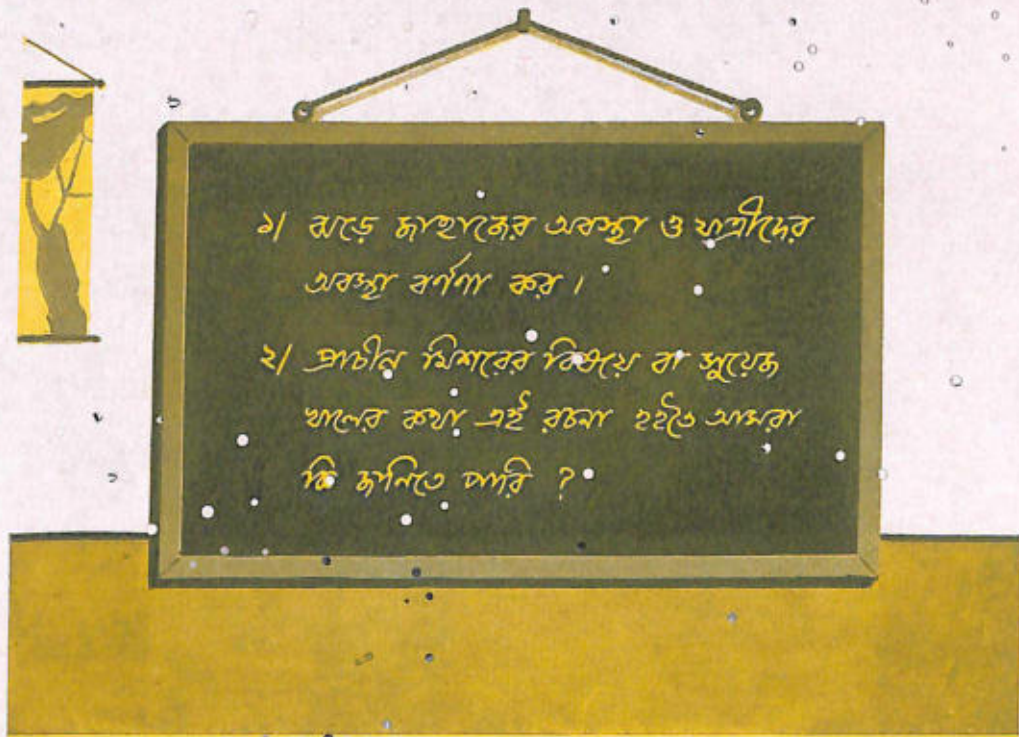 ১৷ ঝড়ে জাহাজের অবস্থা ও যাত্রীদের
অবস্থা বর্ণণা কর।
২৷ প্রাচীন মিশরের বিষয়ে বা সুয়েজ
খালের কথা এই রচনা হইতে আমরা
কি জানিতে পারি ?